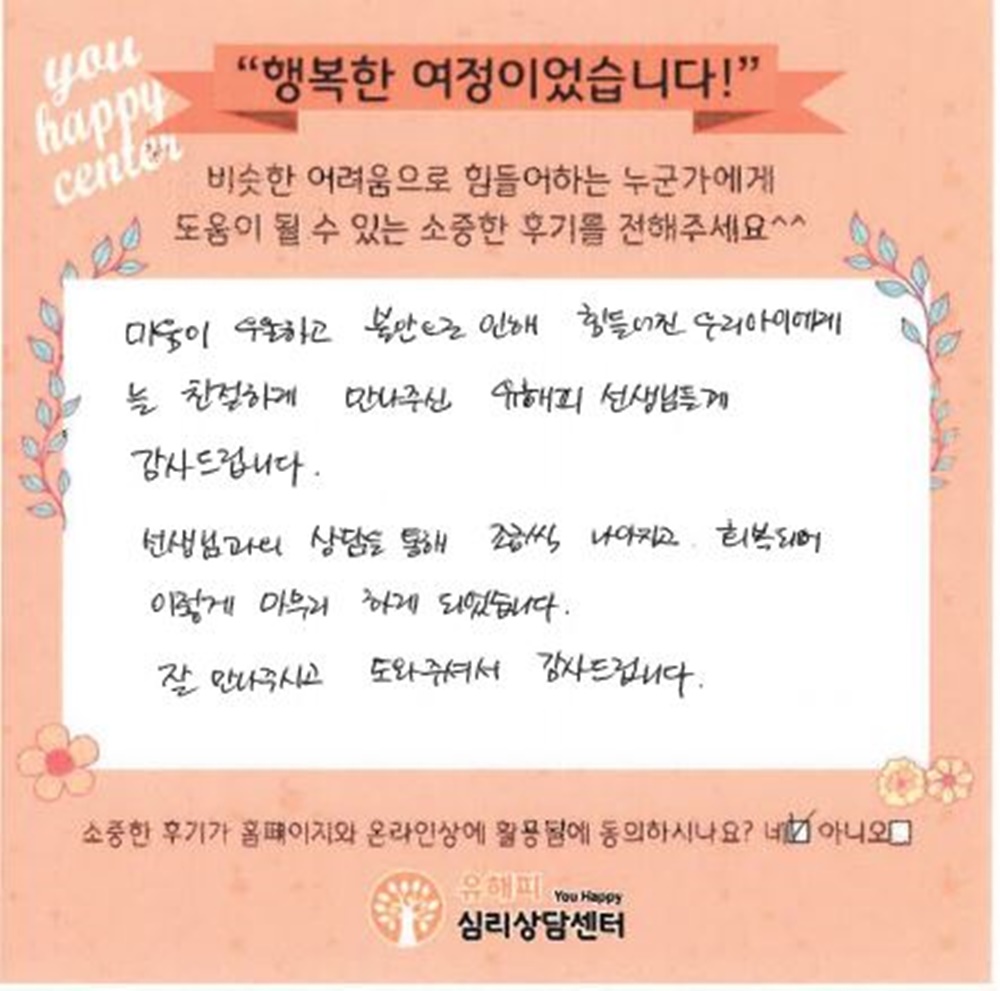 you
happy
center
“행복한 여정이었습니다!”
비슷한 어려움으로 힘들어하는 누군가에게
도움이 될 수 있는 소중한 후기를 전해주세요^^
마음이 우울하고 불안으로 인해 힘들어진 우리아이에게
늘 친절하게 만나주신 유해피 선생님들께
감사드립니다.
선생님과의 상담을 통해 조금씩 나아지고 회복되어
이렇게 마무리 하게 되었습니다.
잘 만나주시고 도와주셔서 감사드립니다.
소중한 후기가 홈페이지와 온라인상에 활용됨에 동의하시나요? 네☑ 아니오☐
유해피 You Happy
심리상담센터